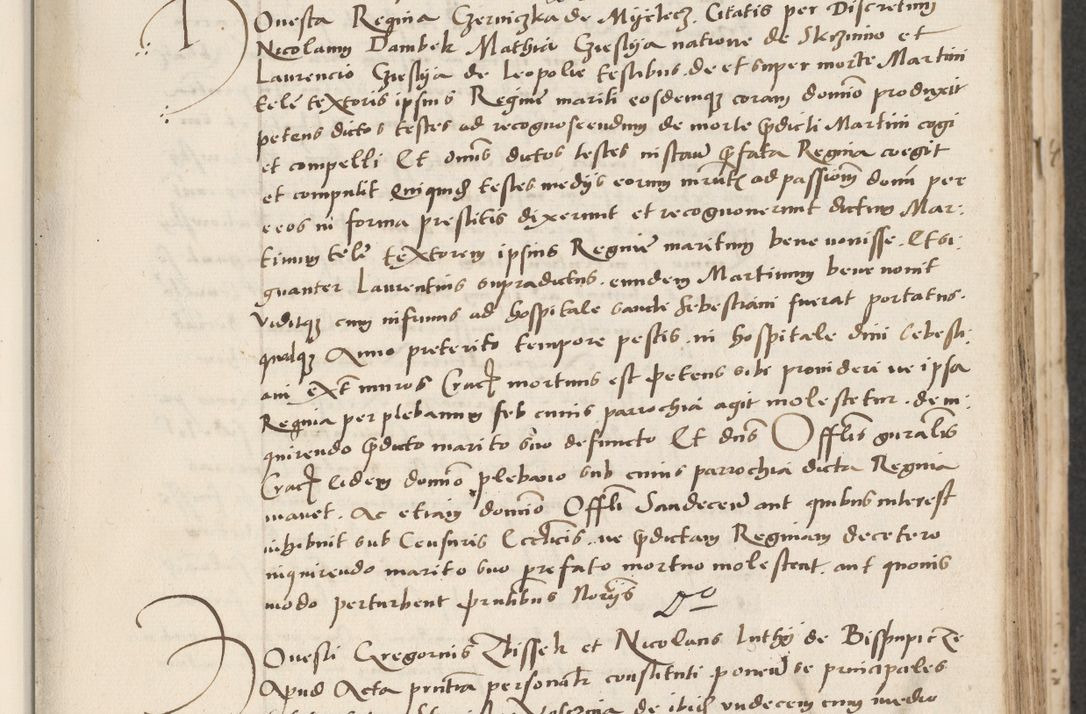 Honesta Regina Czerniczka de Myslecz. Citatis per Discretum
Nicolaum Dambek Mathia Czieslya natione de Skrzinno et
Laurencio Czieslya de Leopolie testibus. de et super morte Martini
tele textoris ipsius Regine mariti eosdemq coram domino produxit
petens dictos testes ad recognoscendum de morte pdicti Martini cogi
et compelli Et omnes dictos testes instans pfata Regina coegit
et compulit Quiquidem testes medys eorum ad passionem domini per
eeos in forma prestitis dixerunt et recognouerunt dictum Mar-
tinum tele textorem ipsius Regine maritum bene nouisse. Et si-
gnanter Laurentius supradictus. eundem Martinum bene nouit
viditq cum infirmus ad hospitale sancti Sebestiani fuerat portatus.
quodq Anno preterito tempore pestis. in hospitale diui Sebesti-
ani extra muros Crac mortuus est Petens sibi prouideri ne ipsa
Regina per plebanum sub cuius parrochia agit molestetur. de in-
quirendo pdicto marito suo defuncto Et dns Offlis gnralis
Crac eidem domino plebano sub cuius parrochia dicta Regina
manet. Ac etiam domino Offli Sandecen aut quibus interest
inhibuit sub Censuris Eccleticis. ne pdictam Reginam decetero
inquirendo marito suo prefato mortuo molestent. aut quouis
modo perturbent pntibus Norys
Honesti Gregorius Bissek et Nicolaus Luthy de
Apud Acta pntia personalr constituti ponen se principales
de ibid vndecem cum medio